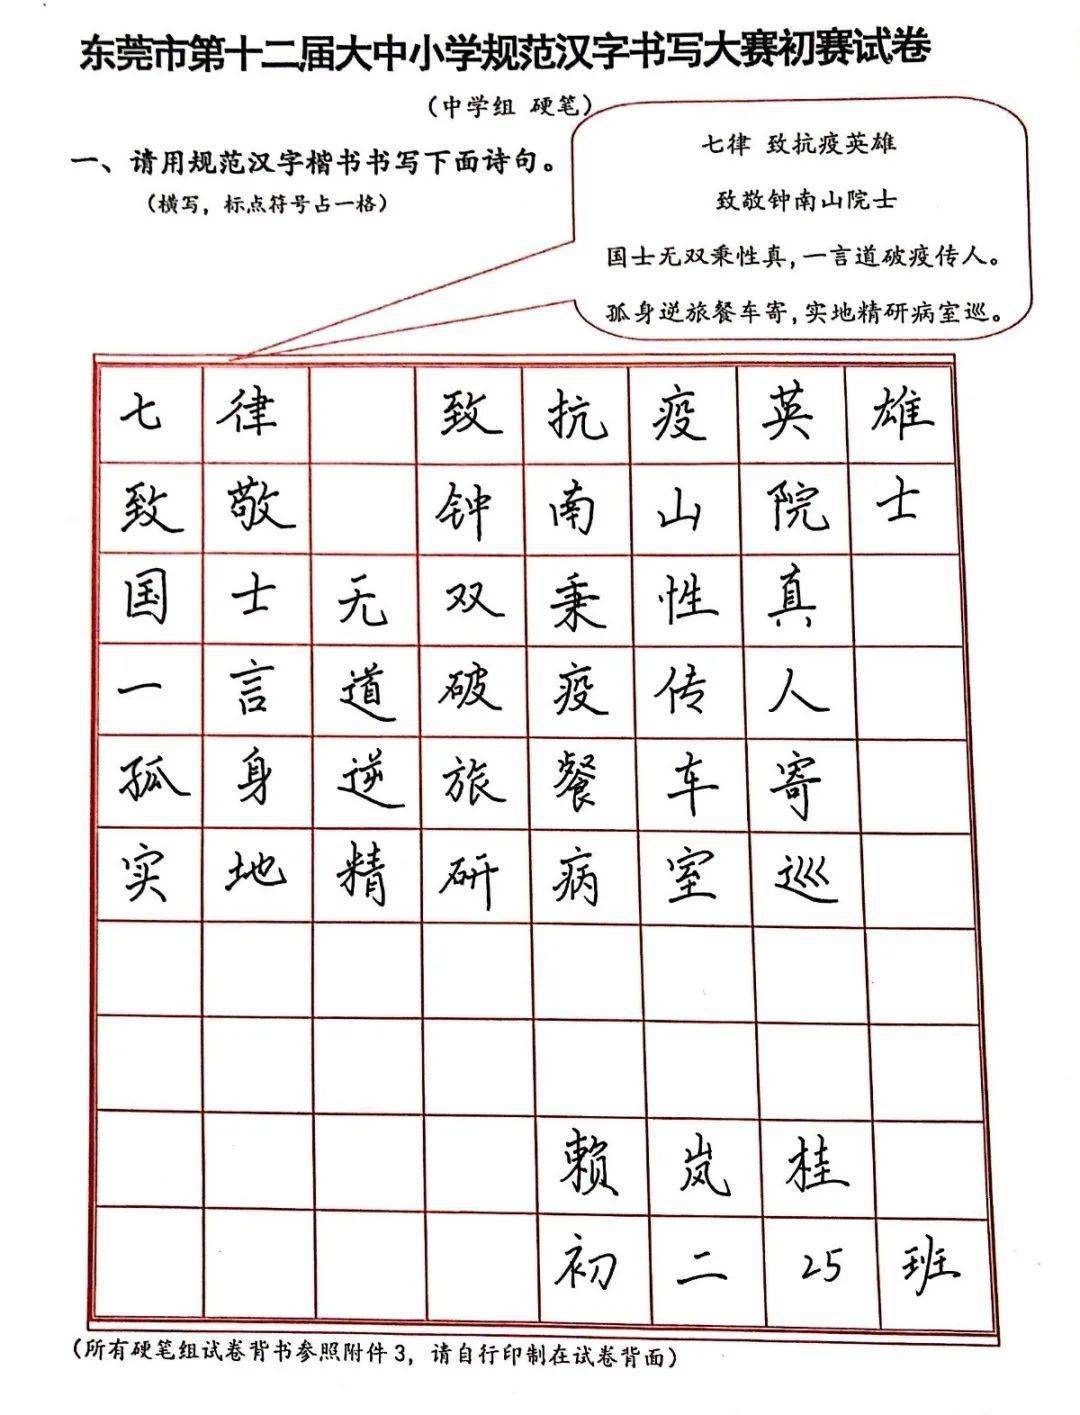 东莞市第十二届大中小学规范汉字书写大赛初赛试卷
（中学组 硬笔）
一、请用规范汉字楷书书写下面诗句。
（横写，标点符号占一格）
七律 致抗疫英雄
致敬钟南山院士
国士无双秉性真，一言道破疫传人。
孤身逆旅餐车寄，实地精研病室巡。
七律 致抗疫英雄
致敬 钟南山院士
国士无双秉性真
一言道破疫传人
孤身逆旅餐车寄
实地精研病室巡
赖岚桂
初二25班
（所有硬笔组试卷背书参照附件3，请自行印制在试卷背面）